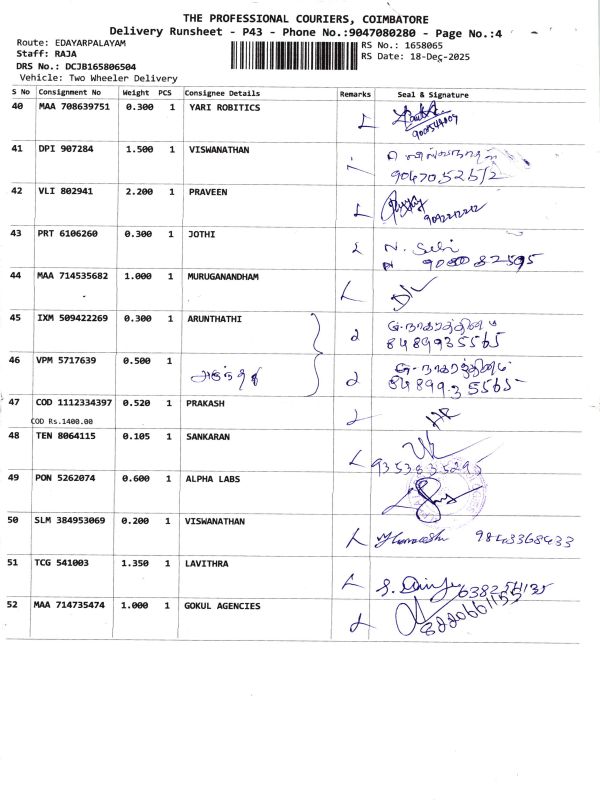 THE PROFESSIONAL COURIERS, COIMBATORE
Delivery Runsheet - P43 - Phone No.:9047080280 - Page No.:4
Route: EDAYARPALAYAM
RS No.: 1658065
Staff: RAJA
RS Date: 18-Dec-2025
DRS No.: DCJB165806504
Vehicle: Two Wheeler Delivery
S No Consignment No Weight PCS Consignee Details Remarks Seal & Signature
40 MAA 708639751 0.300 1 YARI ROBITICS
41 DPI 907284 1.500 1 VISWANATHAN
42 VLI 802941 2.200 1 PRAVEEN
43 PRT 6106260 0.300 1 JOTHI
44 MAA 714535682 1.000 1 MURUGANANDHAM
45 IXM 509422269 0.300 1 ARUNTHATHI
8489935565
46 VPM 5717639 0.500 1
8489935565
47 COD 1112334397 0.520 1 PRAKASH
COD Rs.1400.00
48 TEN 8064115 0.105 1 SANKARAN
9353835295
49 PON 5262074 0.600 1 ALPHA LABS
50 SLM 384953069 0.200 1 VISWANATHAN 9843368433
51 TCG 541003 1.350 1 LAVITHRA
52 MAA 714735474 1.000 1 GOKUL AGENCIES